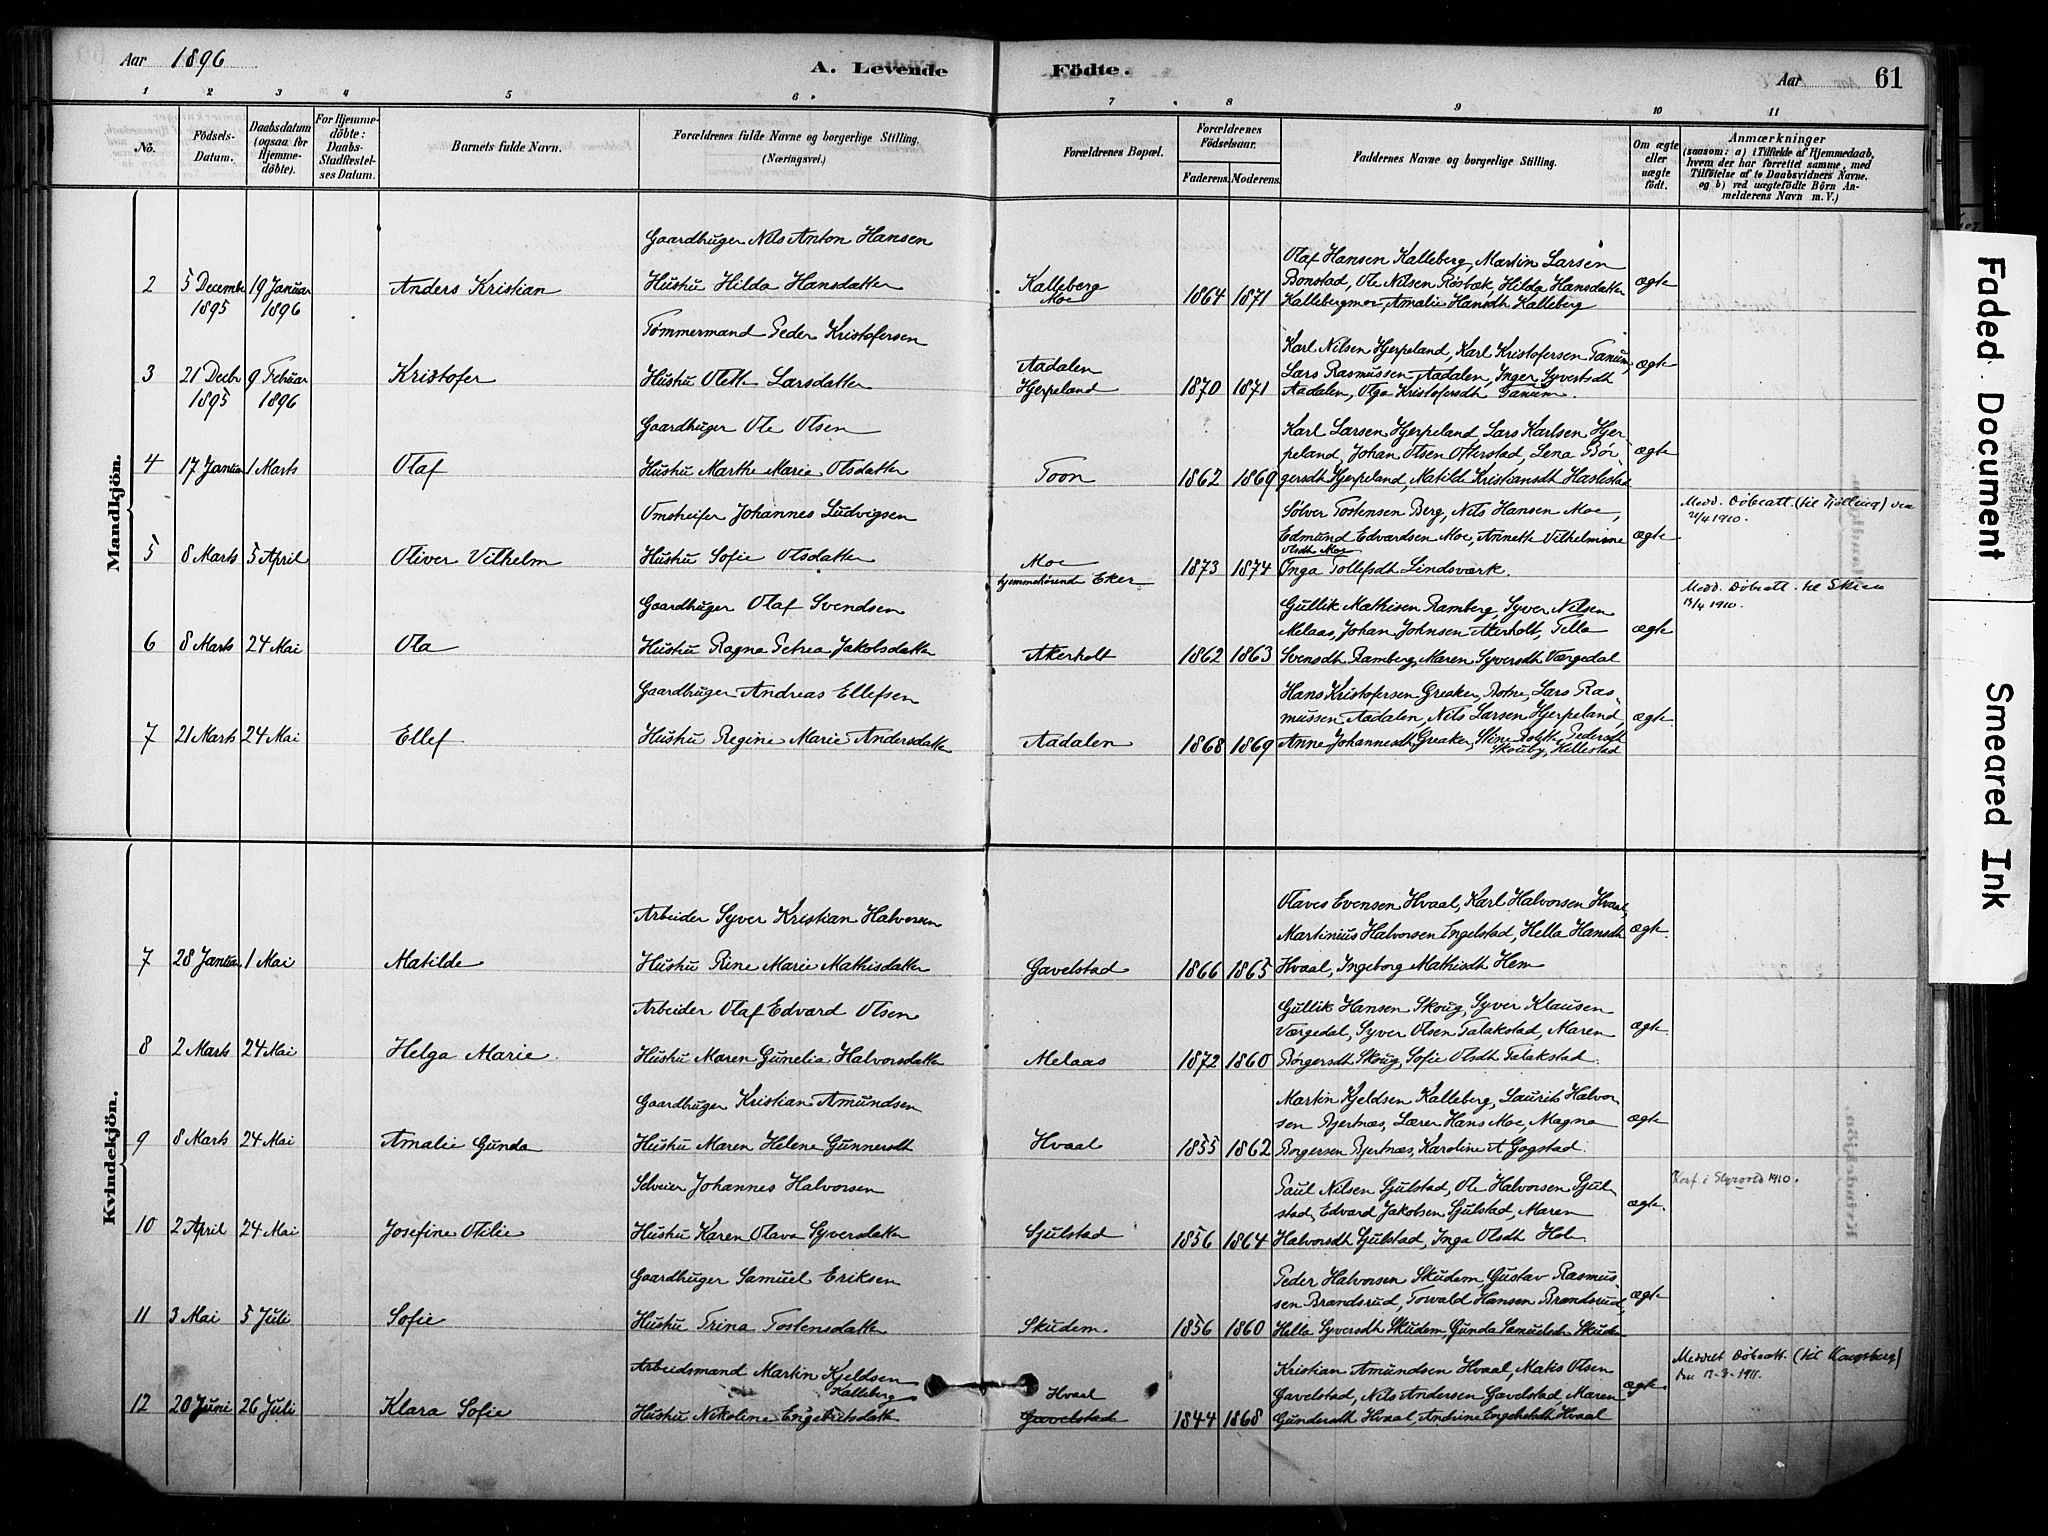 Aar 1896
A. Levende Födte.
Aar 61
1 2 3 4 5 6 7 8 9 10 11
No.
Födsels-Datum.
Daabsdatum (ogsaa for Hjemme-döbte).
For Hjemme-döbte: Daabs-Stadfæstel-ses Datum.
Barnets fulde Navn.
Forældrenes fulde Navne og borgerlige Stilling. (Næringsvei.)
Forældrenes Bopæl.
Forældrenes Födselsaar.
Faderens. Moderens.
Faddernes Navne og borgerlige Stilling.
Om ægte eller uægte födt.
Anmærkninger
(saasom: a) i Tilfælde af Hjemmedaab,
hvem der har forrettet samme, med
Tilföielse af to Daabsvidners Navne.
og b) ved uægtefödte Börn An-
melderens Navn m. V.)
Mandkjön.
Gaardbruger Nils Anton Hansen
2 5 December 1895 19 Januar 1896 Anders Kristian Hustru Hilda Hansdatter Kalleberg Moe 1864 1871
Olaf Hansen Kalleberg, Martin Larsen
Bonstad, Ole Nilsen Røsbæk, Hilda Hansdatter
Kallebergmoe, Amalie Hansdt Kalleberg
ægte
Tømmermand Peder Kristofersen
3 21 Decbr 1895 9 Februar 1896 Kristofer Hustru Olette Larsdatter Aadalen Hjerpeland 1870 1871
Karl Nilsen Hjerpeland, Karl Kristofersen Tanum,
Lars Rasmussen Aadalen, Inger Syvertsdt
Aadalen, Olga Kristofersdt Tanum.
ægte
Gaardbruger Ole Olsen
4 17 Januar 1 Marts Olaf Hustru Marthe Marie Olsdatter Toon 1862 1869
Karl Larsen Hjerpeland, Lars Karlsen Hjer-
peland, Johan Olsen Otterstad, Lena Bør-
gersdt Hjerpeland, Matilde Kristiansdt Haslestad
ægte
Johannes Ludvigsen
5 8 Marts 5 April Oliver Vilhelm Hustru Sofie Olsdatter Moe hjemmehørende Eker 1873 1874
Sølver Tostensen Berg, Nils Hansen Moe,
Edmund Edvardsen Moe, Annette Vilhelmine
Olsdt Moe
Inga Tollefsdt Lindsværk.
ægte
Medd. Døbeatt. (til Tjølling) den
21/4 1910.
Gaardbruger Olaf Svendsen
6 8 Marts 24 Mai Ola Hustru Ragna Petrea Jakobsdatter Akerholt 1862 1863
Gullik Mathisen Ramberg, Syver Nilsen
Melaas, Johan Johnsen Akerholt, Tella
Svensdt Ramberg, Maren Syversdt Værgedal
ægte
Medd. Døbeatt. til Skien
13/4 1910.
Gaardbruger Andreas Ellefsen
7 21 Marts 24 Mai Ellef Hustru Regine Marie Andersdatter Aadalen 1868 1869
Hans Kristofersen Greaker, Botne, Lars Ras-
mussen Aadalen, Nils Larsen Hjerpeland,
Anne Johannesdt Greaker, Stine Pedersdt
Skouby, Hillestad
ægte
Kvindekjön.
Arbeider Syver Kristian Halvorsen
7 28 Januar 1 Mai Matilde Hustru Rine Marie Mathisdatter Gavelstad 1866 1865
Olaves Evensen Hvaal, Karl Halvorsen Hvaal,
Martinius Halvorsen Engelstad, Hella Hansdt
Hvaal, Ingeborg Mathisdt Hem
ægte
Arbeider Olaf Edvard Olsen
8 2 Marts 24 Mai Helga Marie Hustru Maren Gunelia Halvorsdatter Melaas 1872 1860
Gullik Hansen Skoug, Syver Klausen
Værgedal, Syver Olsen Talakstad, Maren
Børgersdt Skoug, Sofie Olsdt Talakstad.
ægte
Gaardbruger Kristian Amundsen
9 8 Marts 24 Mai Amalie Gunda Hustru Maren Helene Gunnersdt Hvaal 1855 1862
Martin Kjeldsen Kalleberg, Laurits Halvor-
sen Bjertnæs, Lærer Hans Moe, Magna
Borgersen Bjertnæs, Karoline A Gogstad.
ægte
Selveier Johannes Halvorsen
10 2 April 24 Mai Josefine Otilie Hustru Karen Olava Syversdatter Sjulstad 1856 1864
Paul Nilsen Sjulstad, Ole Halvorsen Sjul-
stad, Edvard Jakobsen Sjulstad, Maren
Halvorsdt Sjulstad, Inga Olsdt Holm
ægte.
Konf i Styrvold 1910.
Gaardbruger Samuel Eriksen
11 3 Mai 5 Juli Sofie Hustru Trina Tostensdatter Skudem. 1856 1860
Peder Halvorsen Skudem, Gustav Rasmus-
sen Brandsrud, Torvald Hansen Brandsrud,
Hella Syversdt Skudem, Gunda Samuelsdt Skudem
ægte
Arbeidsmand Martin Kjeldsen
Kalleberg
12 20 Juni 26 Juli Klara Sofie Hustru Nikoline Engebretsdatt Hvaal Gavelstad 1844 1868
Kristian Amundsen Hvaal, Matis Olsen
Gavelstad, Nils Andersen Gavelstad, Maren
Gundersdt Hvaal, Andrine Engebretsdt Hvaal
ægte
Meddelt Døbeatt. (til Kongsberg)
Faded Document
Smeared Ink